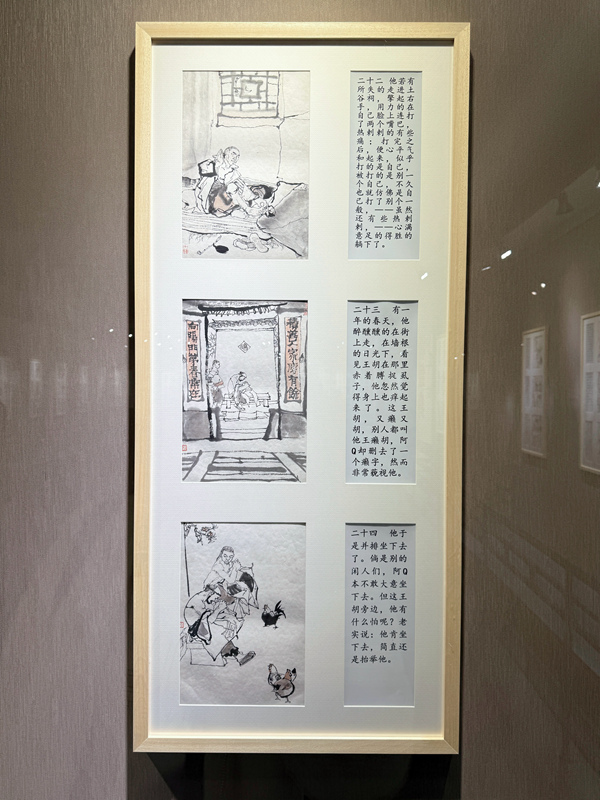 二十二　他若有
所失的走进土
谷祠，擎起右
手，用力的在
自己脸上连打
了两个嘴巴，
热刺刺的有些
痛；打完之
后，便心平气
和起来，似乎
打的是自己，
被打的是别一
个自己，不久
也就仿佛是自
己打了别个一
般，——虽然
还有些热刺
刺，——心满
意足的得胜的
躺下了。
二十三　有一
年的春天，他
醉醺醺的在街
上走，在墙根
的日光下，看
见王胡在那里
赤着膊捉虱
子，他忽然觉
得身上也痒起
来了。这王
胡，又癞又
胡，别人都叫
他王癞胡，阿
Q却删去了一
个癞字，然而
非常藐视他。
二十四　他于
是并排坐下去
了。倘是别的
闲人们，阿Q
本不敢大意坐
下去。但这王
胡旁边，他有
什么怕呢？老
实说：他肯坐
下去，简直还
是抬举他。